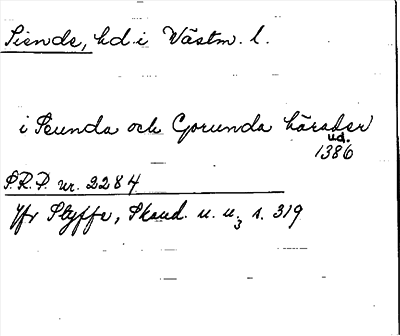 Siende, hd i Västm. l.
i Siunda och Gorunda härader
ud.
1386
S.R.P. nr. 2284
Jfr Styffe, Skand. u. u₃ s. 319